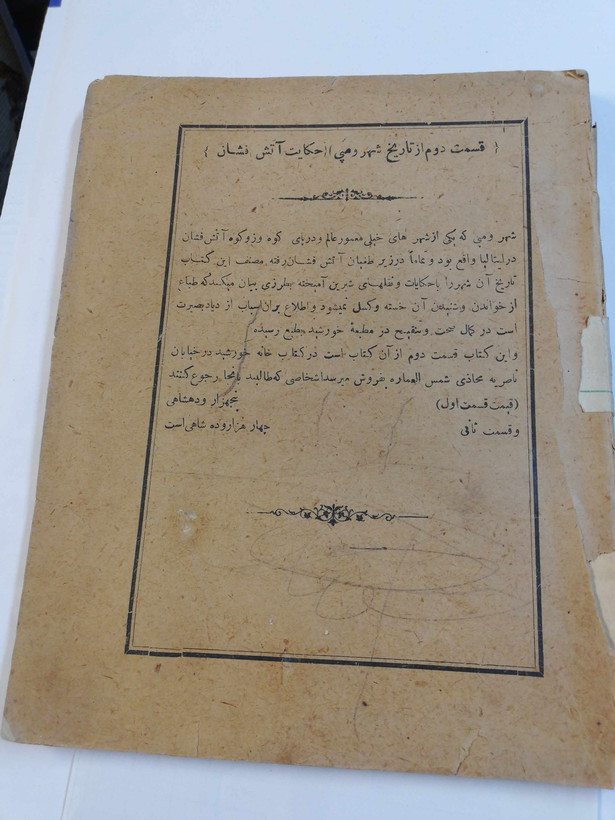 ﴿ قسمت دوم از تاریخ شهر ومپی از حکایت آتش نشان ﴾
شهر ومپی که یکی از شهر های خیلی معمور عالم و در پای کوه وزو کوه آتش فشان
در ایتالیا واقع بود و تماماً در زیر طغیان آتش فشان رفته مصنف این کتاب
تاریخ آن شهر را با حکایات و نقلهای شیرین آمیخته بطرزی بیان میکند که طباع
از خواندن و شنیدن آن خسته و کسل نمیشود و اطلاع بر آن اسباب از دیاد بصیرت
است در کمال صحت و تنقیح در مطبعهٔ خورشید بطبع رسیده
و این کتاب قسمت دوم از آن کتاب است در کتاب خانه خورشید در خیابان
ناصریه محاذی شمس العماره بفروش میرسد اشخاصی که طالبند بآنجا رجوع کنند
(قیمت قسمت اول) پنجهزار و دهشاهی
و قسمت ثانی چهار هزار و ده شاهی است